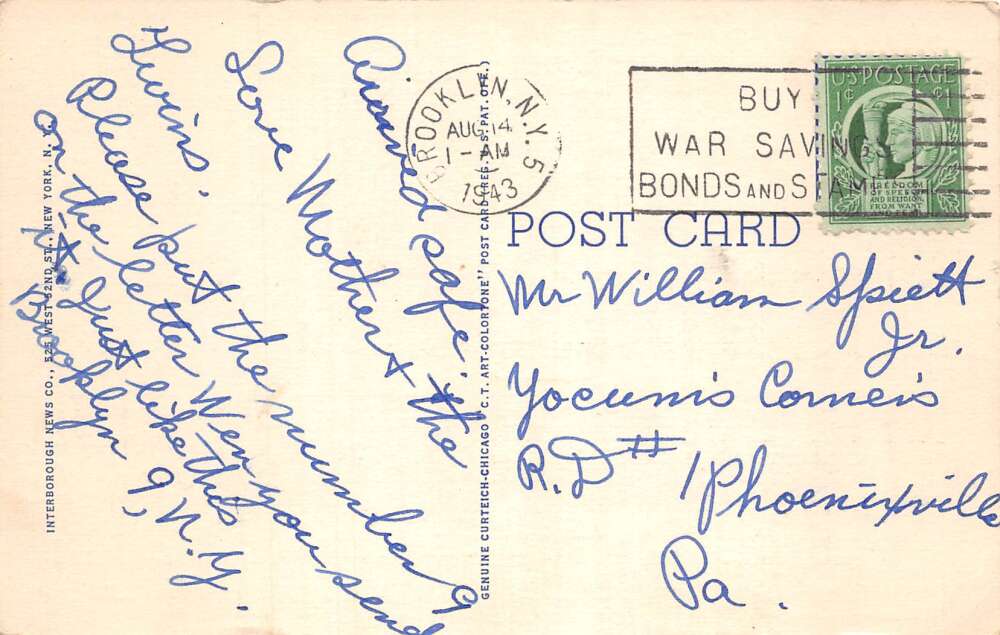 Arived safe.
Love Mother & the
Twins.
Please put the number 9
on the letter Wen you send
it. Just like this
Brooklyn 9, N.Y.
INTERBOROUGH NEWS CO., 525 WEST 52ND ST., NEW YORK, N. Y.
GENUINE CURTEICH-CHICAGO "C.T. ART-COLORTONE" POST CARD (REG. U.S. PAT. OFF.)
BROOKLYN, N.Y. 5
AUG 14
1-AM
1943
BUY
WAR SAVINGS
BONDS AND STAMPS
U.S. POSTAGE
1¢ ¢1
FREEDOM
OF SPEECH
AND RELIGION,
FROM WANT
POST CARD
Mr William Spiett
Jr.
Yocum's Corneis
R.D # 1 Phoenixville
Pa.